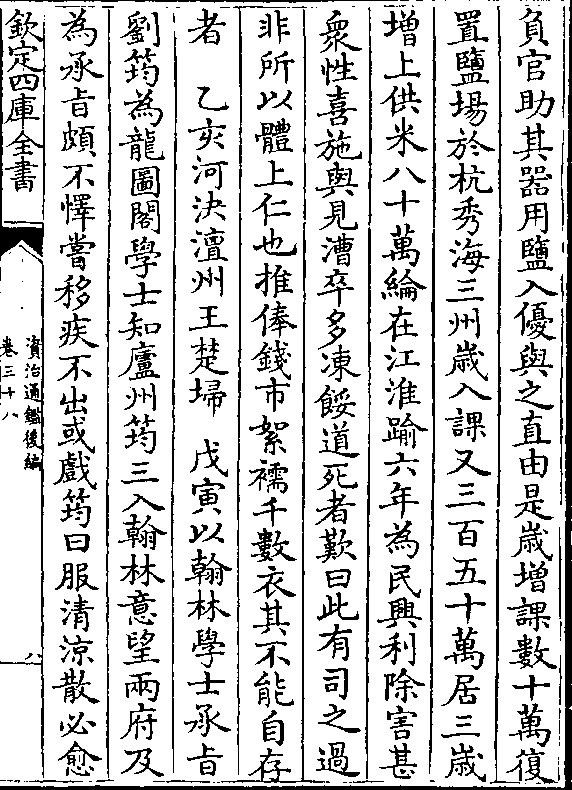 負官助其器用鹽入優與之直由是嵗增課數十萬復
置鹽場於杭秀海三州嵗入課又三百五十萬居三嵗
增上供米八十萬綸在江淮踰六年為民興利除害甚
衆性喜施與見漕卒多凍餒道死者歎曰此有司之過
非所以體上仁也推俸錢市絮襦千數衣其不能自存
者　乙亥河決澶州王楚埽　戊寅以翰林學士承㫖
劉筠為龍圖閣學士知廬州筠三入翰林意望兩府及
為承㫖頗不懌嘗移疾不出或戲筠曰服清涼散必愈
欽定四庫全書
資治通鑑後編
卷三十八
八